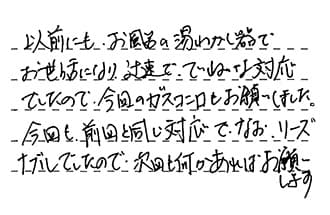 以前にも、お風呂の湯わかし器で
お世話になり、迅速で、ていねいな対応
でしたので、今回のガスコンロもお願いしました。
今回も、前回と同じ対応で、なお、リーズ
ナブルでしたので、次回も何かあればお願い
します